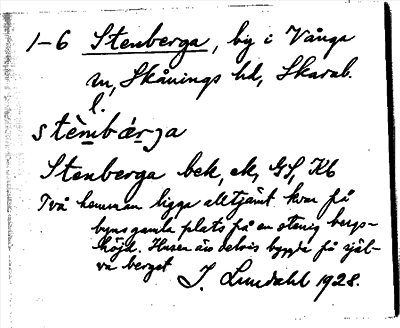 1–6 Stenberga, by i Vånga
sn, Skånings hd, Skarab.
l.
stèmbárja
Stenberga bek, ek, GS, Kb
Två hemman ligga alltjämt kvar på
byns gamla plats på en stenig bergs-
höjd. Husen äro delvis byggda på själ-
va berget
J. Lundahl 1928.